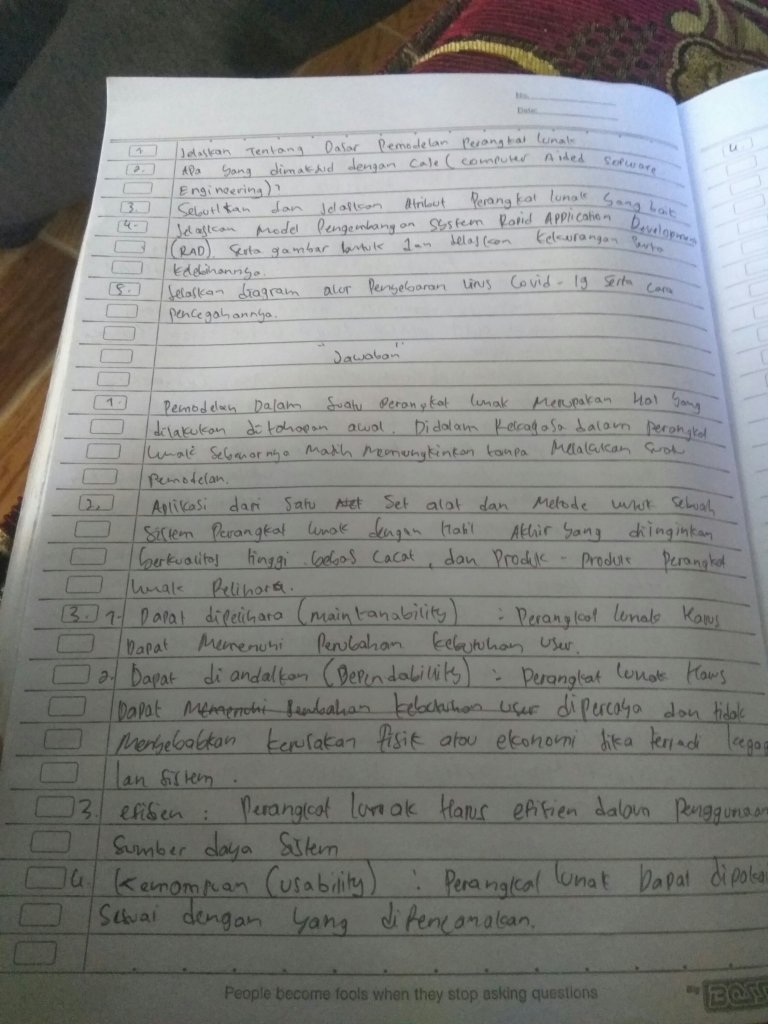 No:
Date:
1. Jelaskan Tentang Dasar Pemodelan Perangkat lunak
2. Apa yang dimaksud dengan Case (computer Aided Software
Engineering)?
3. Sebutkan dan Jelaskan Atribut Perangkat lunak yang baik
4. Jelaskan Model Pengembangan System Rapid Application Development
(RAD). Serta gambar bentuk dan Jelaskan Kekurangan Serta
kelebihannya.
5. Jelaskan diagram alur Penyebaran virus Covid-19 Serta cara
Pencegahannya.
"Jawaban"
1. Pemodelan Dalam Suatu Perangkat lunak Merupakan Hal yang
dilakukan di tahapan awal. Didalam Rekayasa dalam perangkat
lunak Sebenarnya Masih Memungkinkan tanpa Melakukan Suatu
Pemodelan.
2. Aplikasi dari Satu Set alat dan Metode untuk Sebuah
Sistem Perangkat lunak dengan Hasil Akhir yang diinginkan
berkualitas tinggi, bebas Cacat, dan Produk - Produk Perangkat
lunak Pelihara.
3. 1. Dapat dipelihara (maintanability) : Perangkat lunak Harus
Dapat Memenuhi Perubahan kebutuhan user.
2. Dapat di andalkan (Dependability) : Perangkat lunak Harus
Dapat Memenuhi Perubahan kebutuhan user dipercaya dan tidak
Menyebabkan kerusakan fisik atau ekonomi jika terjadi kegaga
lan Sistem.
3. efisien : Perangkat lunak Harus efisien dalam Penggunaan
Sumber daya Sistem
4. Kemampuan (usability) : Perangkat lunak Dapat dipakai
Sesuai dengan yang direncanakan.
People become fools when they stop asking questions
By
4.